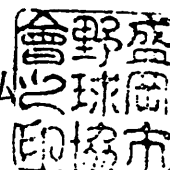 盛岡市
野球協
會之印